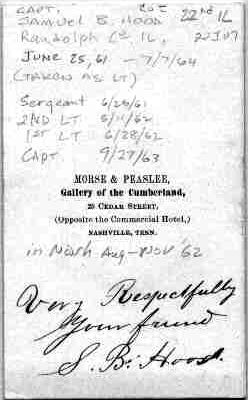 CAPT. CO I 22nd IL
SAMUEL B. HOOD
RANDOLPH Co IL,
JUNE 25, 61 - 7/7/64
(TAKEN AS LT)
Sergeant 6/25/61
2ND LT 5/11/62
1ST LT 6/28/62
CAPT. 9/27/63
MORSE & PEASLEE,
Gallery of the Cumberland,
25 CEDAR STREET,
(Opposite the Commercial Hotel,)
NASHVILLE, TENN.
in Nash Aug-Nov '62
Very Respectfully
Your friend
S. B. Hood.